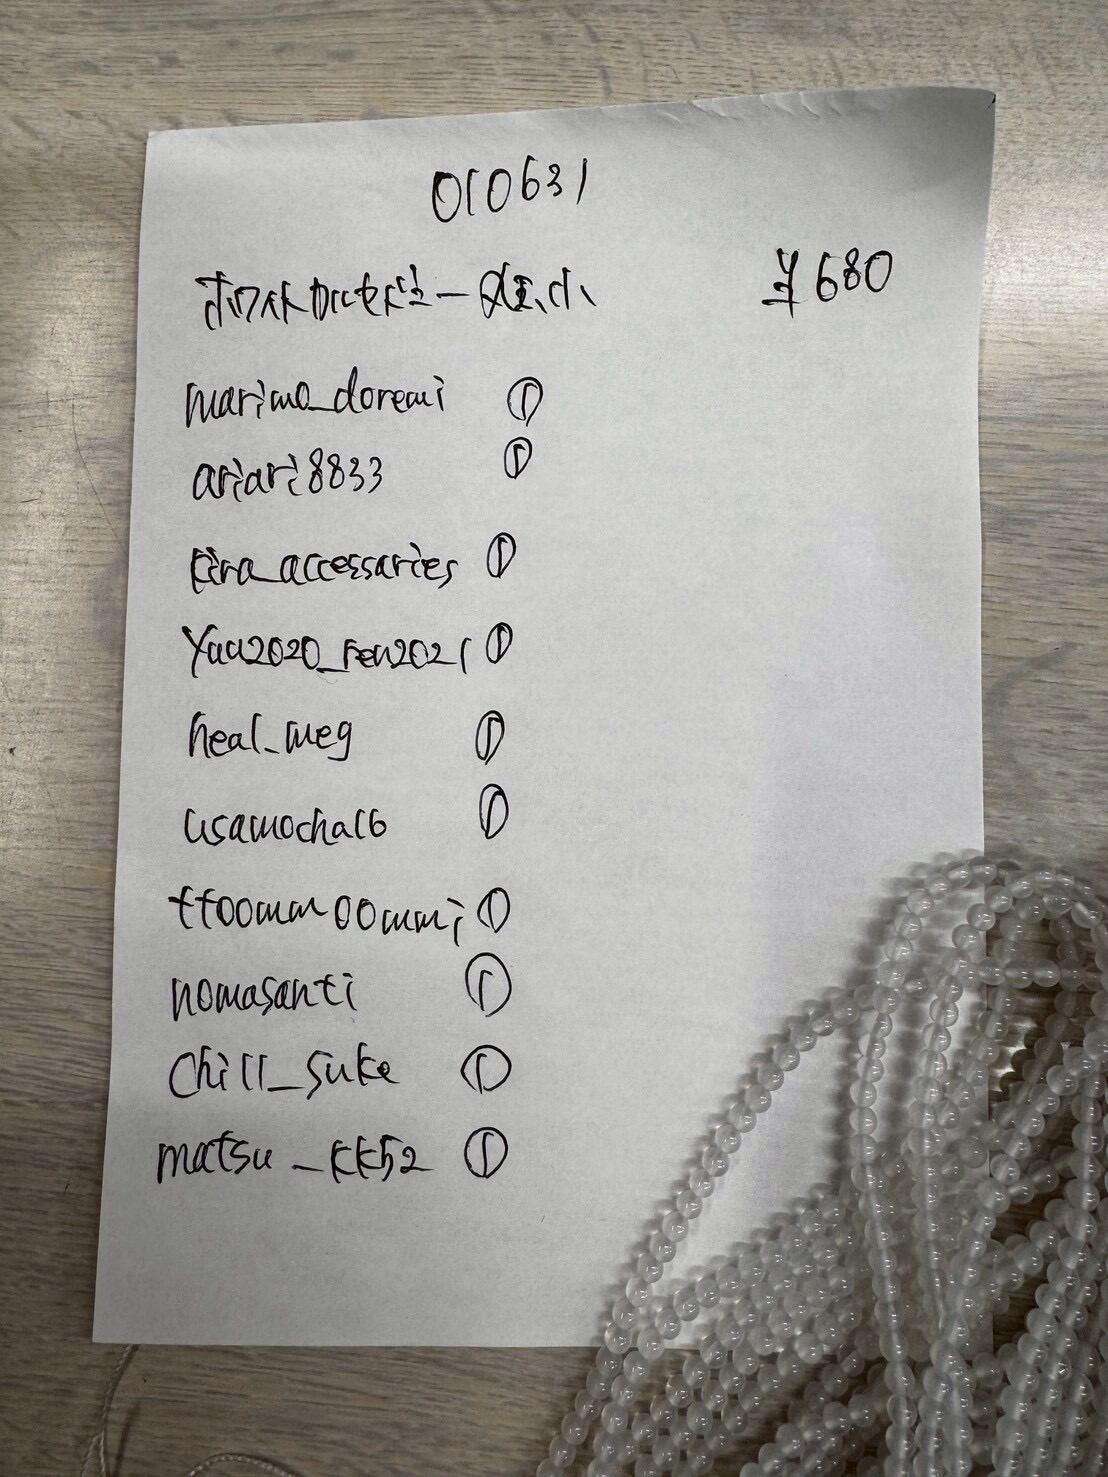 010631
¥680
marimo_doremi ①
ariari8833 ①
kira_accessaries ①
Yuu2020_ren2021 ①
heal_meg ①
usamocha16 ①
ttoommoommi ①
nomasanti ①
chill_suke ①
matsu_kk52 ①